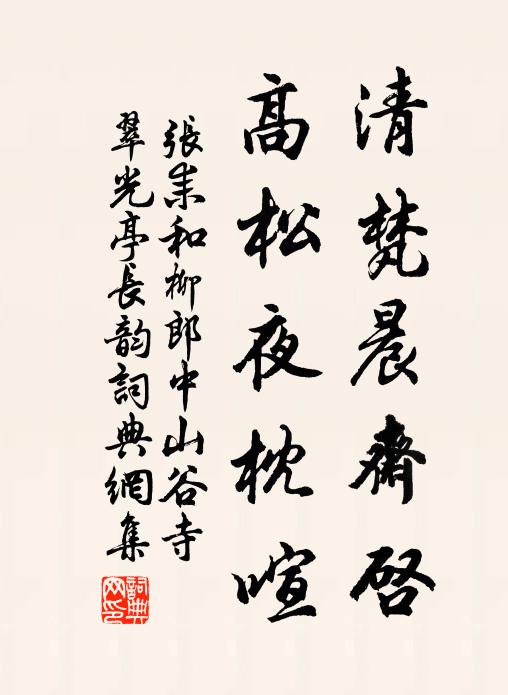 清梵晨齋啓
高松夜枕喧
張耒和柳郎中山谷寺
翠光亭長韵詞典網集
詞典網印